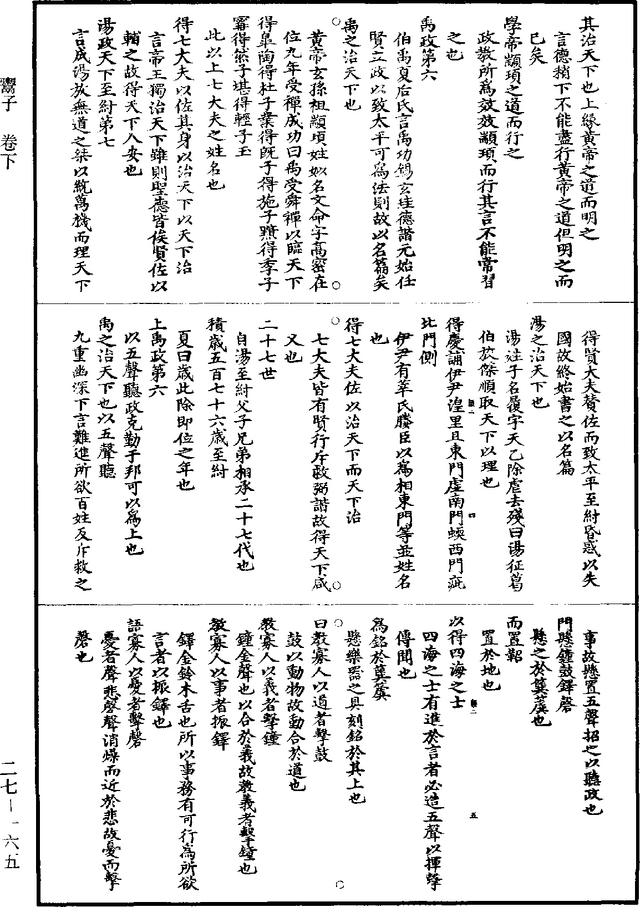 其治天下也上緣黃帝之道而明之
言德稍下不能盡行黃帝之道但明之而
已矣
學帝顓頊之道而行之
政教所爲效效顓頊而行其言不能常習
之也
禹政第六
伯禹夏后氏言禹功錫玄珪德諧元始任
賢立政以致太平可爲法則故以名篇矣
禹之治天下也
黃帝玄孫祖顓頊姓姒名文命字高密在
位九年受禪成功曰禹受舜禪以臨天下
得皐陶得杜子業得旣子得施子黯得季子
甯得然子堪得輕子玉
此以上七大夫之姓名也
得七大夫以佐其身以治天下以天下治
言帝王獨治天下雖則聖德皆俟賢佐以
輔之故得天下人安也
湯政天下至紂第七
言成湯放無道之桀以統萬機而理天下
得賢大夫贊佐而致太平至紂昏惑以失
國故終始書之以名篇
湯之治天下也
湯姓子名履字天乙除虐去殘曰湯征葛
伯放桀順取天下以理也
得慶誧伊尹湟里且東門虛南門蝡西門疵
北門側
伊尹有莘氏媵臣以爲相東門等並姓名
也
得七大夫佐以治天下而天下治
七大夫皆有賢行斥戲弼諧故得天下咸
乂也
二十七世
自湯至紂父子兄弟相承二十七代也
積歲五百七十六歲至紂
夏曰歲此除即位之年也
上禹政第六
以五聲聽政克勤于邦可以爲上也
禹之治天下也以五聲聽
九重幽深下言難進所欲百姓及斥救之
事故懸置五聲招之以聽政也
門懸鍾鼓鐸磬
懸之於簨簴也
而置鞀
置於地也
以得四海之士
四海之士有進於言者必造五聲以揮擊
傳聞也
爲銘於簨簴
懸樂器之具刻銘於其上也
曰教寡人以道者擊鼓
鼓以動物故動合於道也
教寡人以義者擊鍾
鍾金聲也以合於義故教義者擊鍾也
教寡人以事者振鐸
鐸金鈴木舌也所以事務有可行爲所欲
言者以振鐸也
語寡人以憂者擊磬
憂者聲悲磬聲消燥而近於悲故憂而擊
磬也
鬻子　卷下
二七—一六五